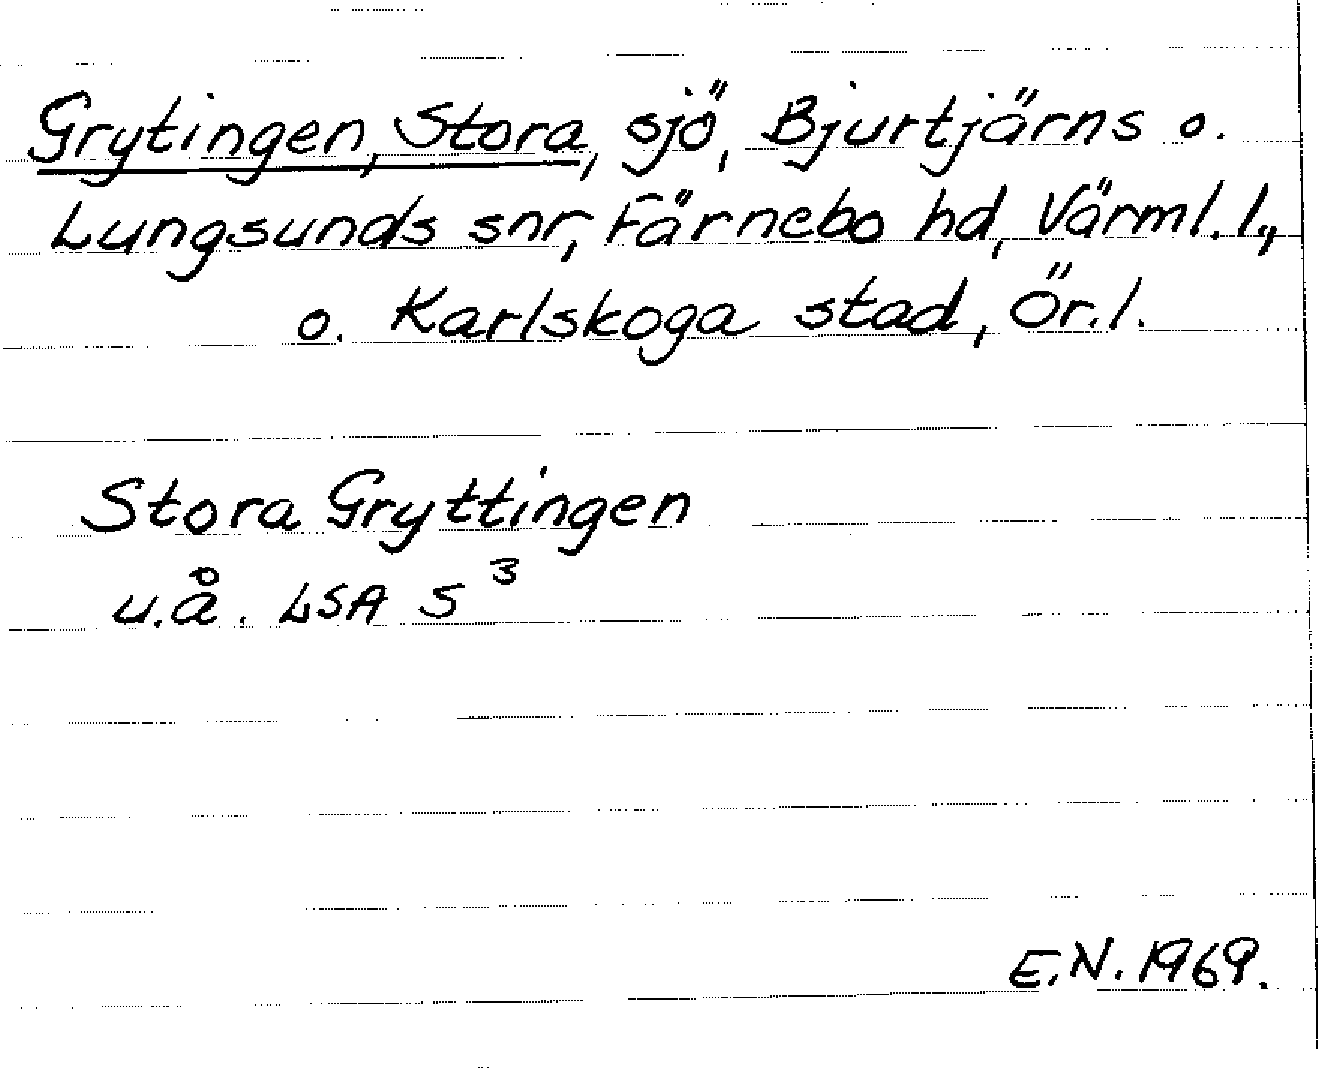 Grytingen, Stora, sjö, Bjurtjärns o.
Lungsunds snr, Färnebo hd, Värml. l.,
o. Karlskoga stad, Ör.l.
Stora Gryttingen
u.å. LSA S³
E.N. 1969.